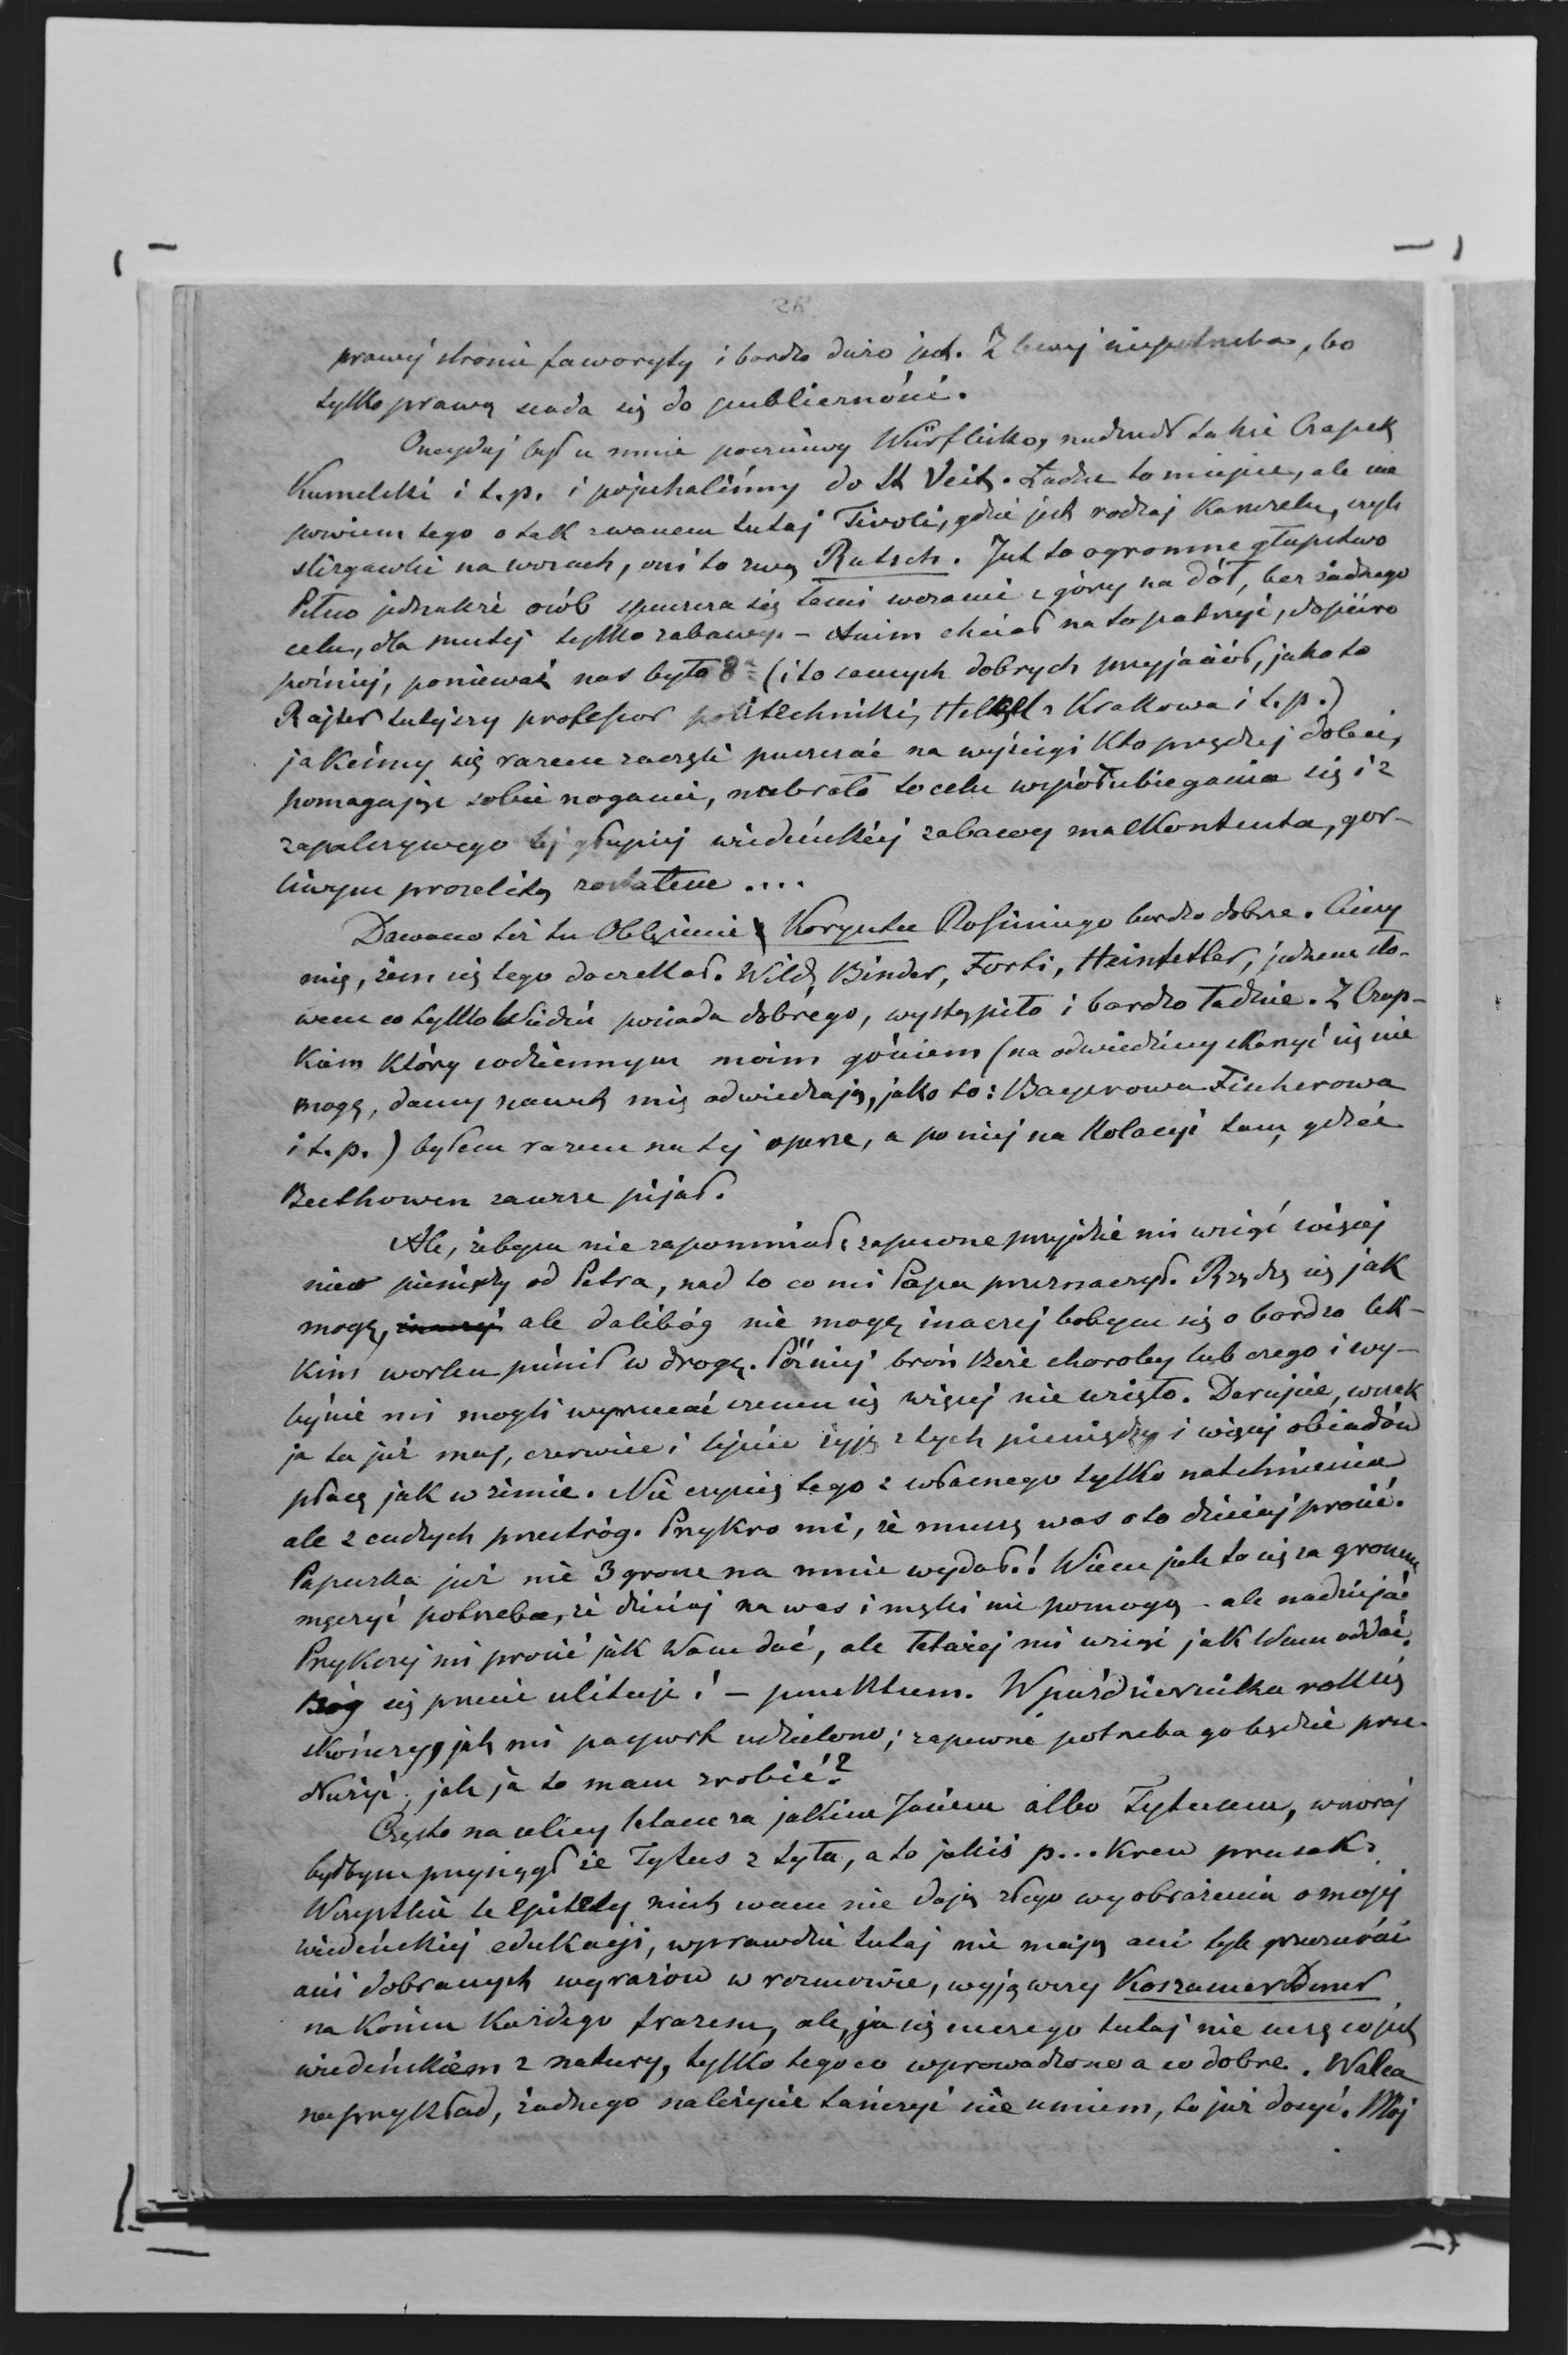 prawéj stronie faworyty i bardzo duże jest. Z lewej niepotrzeba, bo
tylko prawą siada się do publiczności.
Onegdaj był u mnie poczciwy Würflisko, nadszedł także Czapek,
Kumelski i t.p. i pojechaliśmy do St Veit. Ładne to miejsce, ale nie
powiem tego o tak zwanem tutaj Tivoli, gdzie jest rodzaj karuzelu, czyli
ślizgawki na wozach, oni to zwą Rutsch. Jest to ogromne głupstwo
Pełno jednakże osób spuszcza się temi wozami z góry na dół, bez żadnego
celu, dla pustej tylko zabawy. – Anim chciał na to patrzyć, dopiéro
poźniej, ponieważ nas było 8 (i to samych dobrych przyjaciół, jako to
Rajter tutejszy professor politechniki, Helcel z Krakowa i t.p.)
jakeśmy się razem zaczęli puszczać na wyścigi kto prędzej doleci,
pomagając sobie nogami, nabrało to celu współubiegania się i z
zapalczywego téj głupiéj wiedeńskiéj zabawy malkontenta, gor-
liwym prozelitą zostałem ....
Dawano też tu Oblężenie Koryntu Rossiniego bardzo dobrze. Cieszy
mię, żem się tego doczekał. Wild, Binder, Forti, Heinfetter, jednem sło-
wem co tylko Wiedeń posiada dobrego, wystąpiło i bardzo ładnie. Z Czap-
kiem który codziennym moim gościem (na odwiedziny skarzyć się nie
mogę, damy nawet mię odwiedzają, jako to: Bayerowa Fischerowa
i t.p.) byłem razem na téj operze, a po niej na kolacyi tam, gdzie
Beethowen zawsze pijał.
Ale, żebym nie zapomniał, zapewne przyjdzie mi wziąć więcej
nieco pieniędzy od Petra, nad to co mi Papa przeznaczył. Rządzę się jak
mogę, ale dalibóg nie mogę inaczej bobym się o bardzo lek-
kim worku puścił w drogę. Później broń Boże choroby lub czego i wy-
byście mi mogli wyrzucać czemu się więcej nie wzięło. Darujcie, wszak
ja tu już maj, czerwiec i lipiec żyję z tych pieniędzy i więcej obiadów
płacę jak w zimie. Nie czynię tego z własnego tylko natchnienia
ale z cudzych przestróg. Przykro mi, że muszę was o to dzisiaj prosić.
Papuzka już nie 3 grosze na mnie wydał! Wiem jak to się za groszem
męczyć potrzeba, że dzisiaj na was i męki nie pomogą – ale nadzieja
Przykrzej mi prosić jak Wam dać, ale łatwiej mi wziąć jak Wam oddać.
Bóg się przecie ulituje i – punktum. W październiku rok się
skończy, jak mi paszport udzielono; zapewne potrzeba go będzie prze-
dłużyć, jak ja to mam zrobić?
Często na ulicy latam za jakim Jasiem albo Tytusem, wczoraj
byłbym przysiągł że Tytus z tyłu, a to jakiś p... krew prusak.
Wszystkie te epitety niech wam nie dają złego wyobrażenia o mojéj
wiedeńskiéj edukacji, wprawdzie tutaj nie mają ani tyle grzeczności
ani dobranych wyrazów w rozmowie, wyjąwszy Koszamer Diner
na końcu każdego frazesu, ale ja się niczego tutaj nie uczę co jest
wiedeńskiem z natury, tylko tego co wprowadzono a co dobre. Walca
naprzykład, żadnego należycie tańczyć nie umiem, to już dosyć. Mój